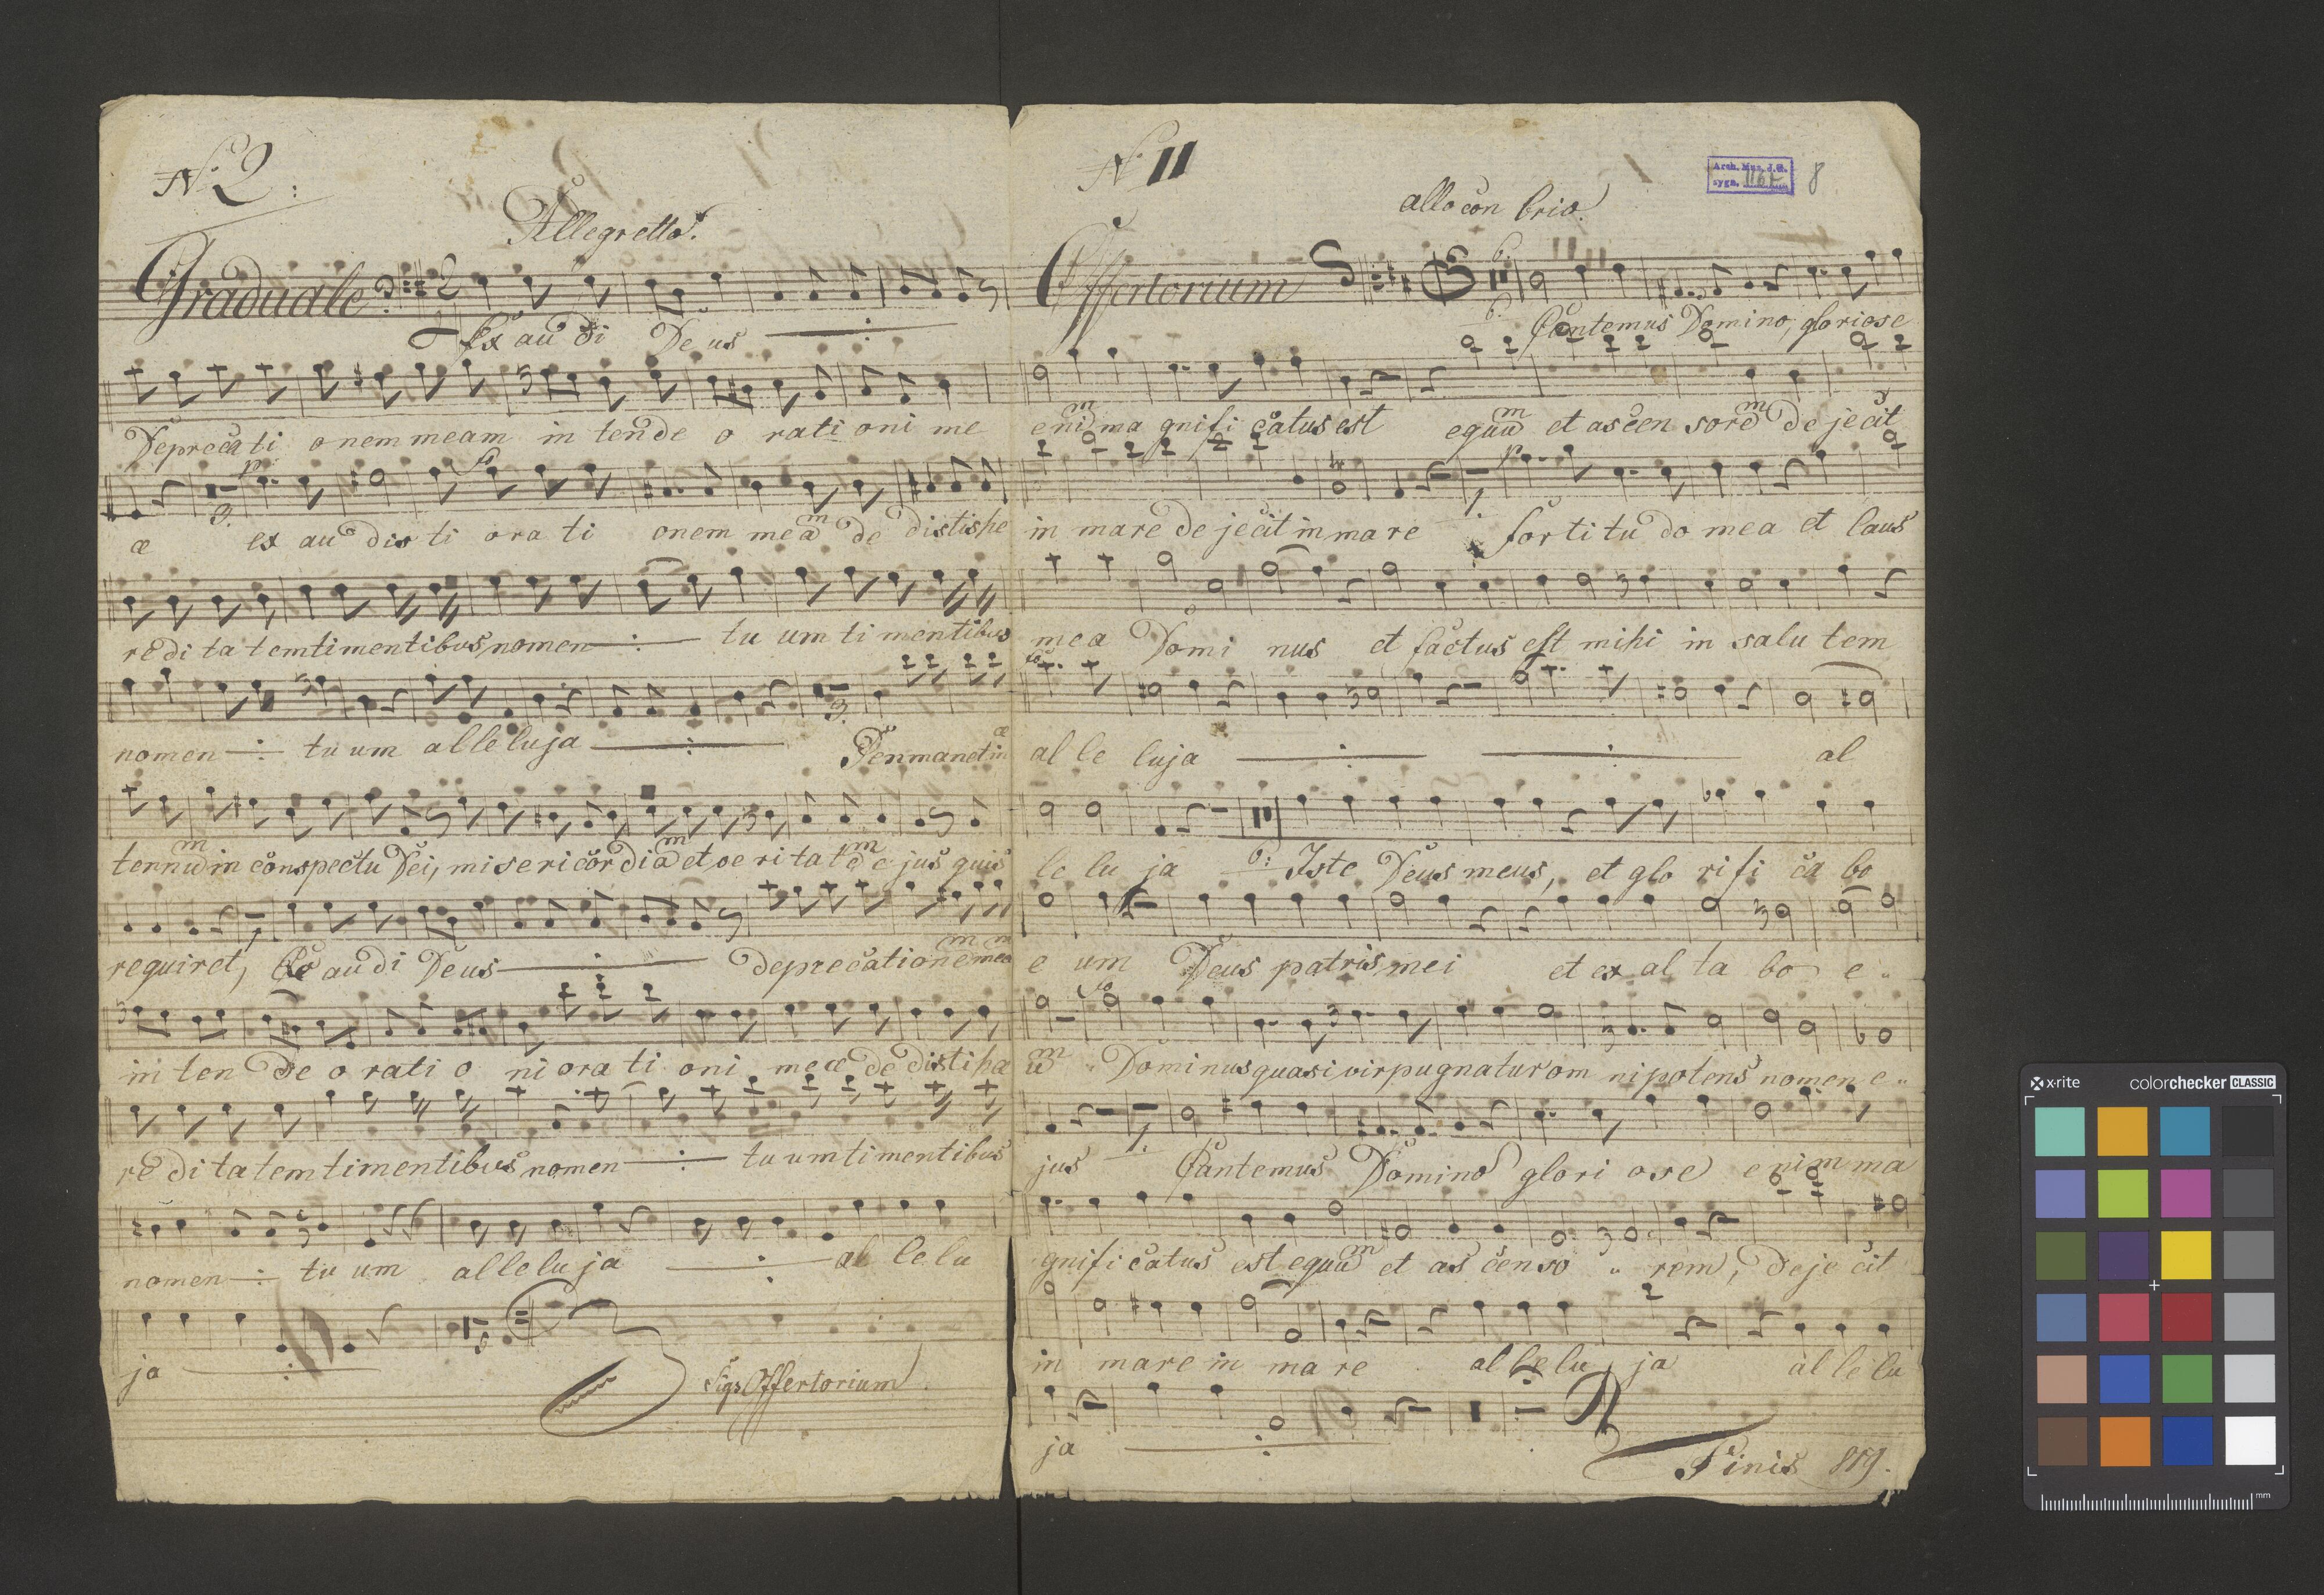 No 2:
Allegretto.
Graduale.
Exaudi Deus
Deprecati onem meam in tende o rati oni me
p fo
æ 9. ex au dis ti ora ti onem meam de distishe
redi ta temtimentibus nomen tu um ti mentibus
nomen tu um alleluja 9. Permanet in æ
ternum in conspectu Dei, misericordiam et veritatem ejus quis
requiret, Exaudi Deus deprecationem meam
in ten de o rati o ni ora ti oni meæ de disti hæ
redi ta temtimentibus nomen tu um timentibus
nomen tu um alleluja al le lu
ja
Sigs Offertorium
No 11
Arch. Mus. J.G.
sygn. 8
allo con brio.
Offertorium 6.
6. Cantemus Domino, gloriose
enim ma gnifi catus est equum et ascen sorem de jecit
p
in mare de jecit in ma re 1. for ti tu do mea et laus
mea Domi nus et factus est mihi in salu tem
fo
al le luja al
le lu ja 6: Iste Deus meus, et glo ri fi ca bo
e um Deus patris mei et ex al ta bo e"
fo
um " Dominus quasi vir pugnatur om nipotens nomen e"
jus 1. Cantemus Domino glori ose enim ma
gnifi catus est equum et as censo " rem, deje cit
in mare in ma re al le lu ja al le lu
ja
Finis 819.